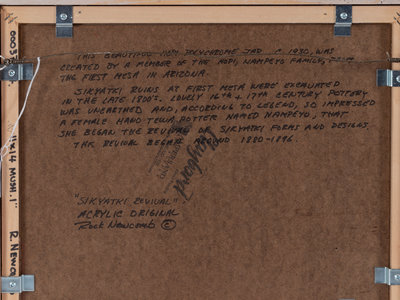 THIS BEAUTIFUL HOPI POLYCHROME JAR C. 1930, WAS
CREATED BY A MEMBER OF THE HOPI, NAMPEYO FAMILY, FROM
THE FIRST MESA IN ARIZONA.
SIKYATKI RUINS AT FIRST MESA WERE EXCAVATED
IN THE LATE 1800'S. LOVELY 16th & 17th CENTURY POTTERY
WAS UNEARTHED AND, ACCORDING TO LEGEND, SO IMPRESSED
A FEMALE HANO TEWA POTTER NAMED NAMPEYO, THAT
SHE BEGAN THE REVIVAL OF SIKYATKI FORMS AND DESIGNS.
THE REVIVAL BEGAN AROUND 1880-1896.
"SIKYATKI REVIVAL"
ACRYLIC ORIGINAL
Rock Newcomb ©
11x14 MUSH. 1"
R. NEWCO